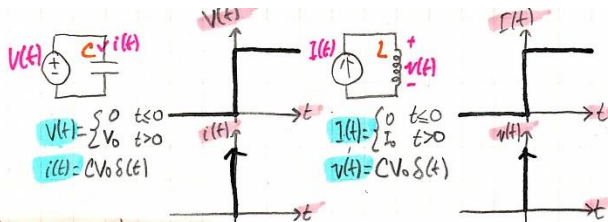 V(t) C i(t)
V(t)
t
V(t)= { 0 t≤0
V₀ t>0
i(t)= CV₀δ(t)
i(t)
t
I(t) L + v(t) -
I(t)
t
I(t)= { 0 t≤0
I₀ t>0
v(t)= CV₀δ(t)
v(t)
t